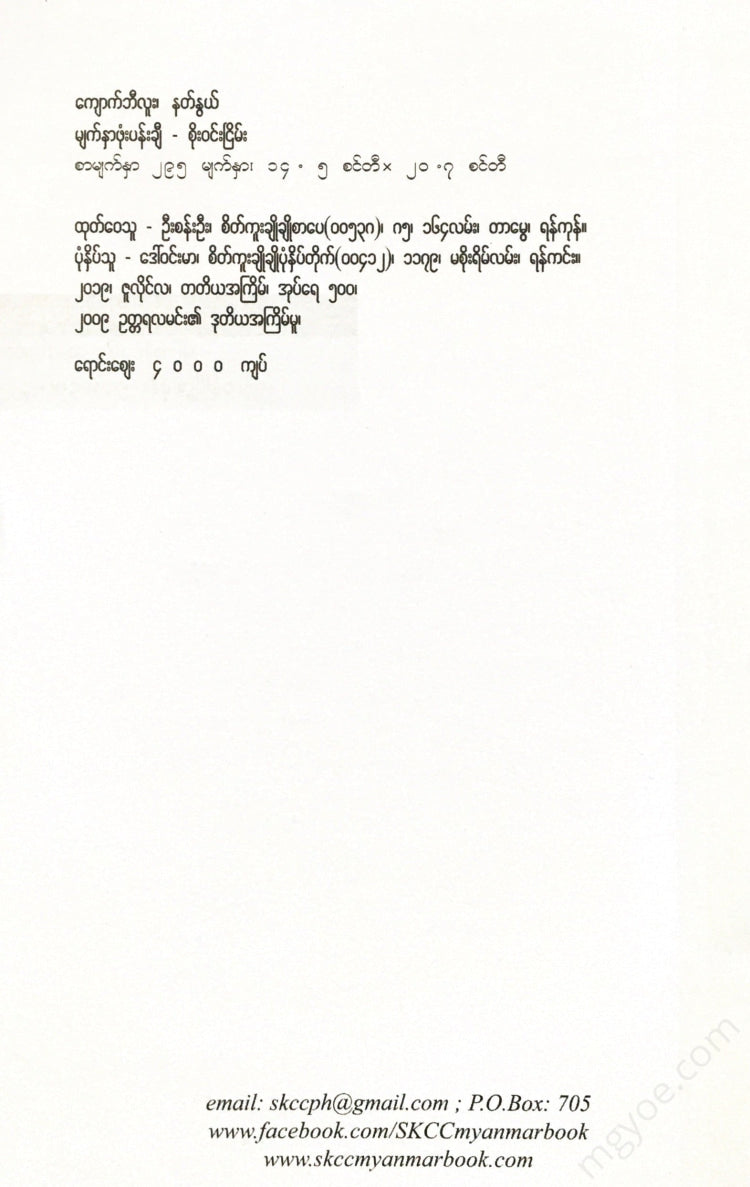 ကျောက်ဘီလူး၊ နတ်နွယ်
မျက်နှာဖုံးပန်းချီ - စိုးဝင်းငြိမ်း
စာမျက်နှာ ၂၉၅ မျက်နှာ၊ ၁၄ . ၅ စင်တီ × ၂၀ .၇ စင်တီ
ထုတ်ဝေသူ - ဦးစန်းဦး၊ စိတ်ကူးချိုချိုစာပေ(၀၀၅၃၈)၊ ဂ၅၊ ၁၆၄လမ်း၊ တာမွေ၊ ရန်ကုန်။
ပုံနှိပ်သူ - ဒေါ်ဝင်းမာ၊ စိတ်ကူးချိုချိုပုံနှိပ်တိုက်(၀၀၄၁၂)၊ ၁၁၇၉၊ မစိုးရိမ်လမ်း၊ ရန်ကင်း။
၂၀၁၉၊ ဇူလိုင်လ၊ တတိယအကြိမ်၊ အုပ်ရေ ၅၀၀၊
၂၀၀၉ ဥတ္တရလမင်း၏ ဒုတိယအကြိမ်မူ၊
ရောင်းစျေး ၄ ၀ ၀ ၀ ကျပ်
email: skccph@gmail.com ; P.O.Box: 705
www.facebook.com/SKCCmyanmarbook
www.skccmyanmarbook.com
mgyoe.com